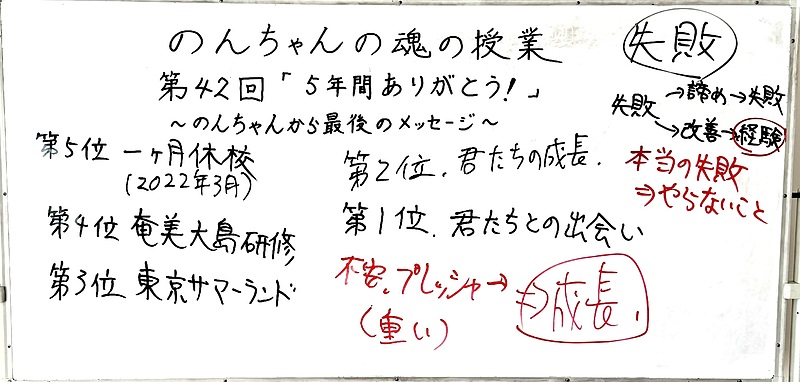 のんちゃんの魂の授業
第42回「5年間ありがとう!」
~のんちゃんから最後のメッセージ~
第5位 一ヶ月休校
(2022年3月)
第4位 奄美大島研修
第3位 東京サマーランド
第2位、君たちの成長.
第1位、君たちとの出会い
不安、プレッシャー→
(重い)
⇒成長、
失敗
失敗
→諦め→失敗
→改善→経験
本当の失敗
⇒やらないこと